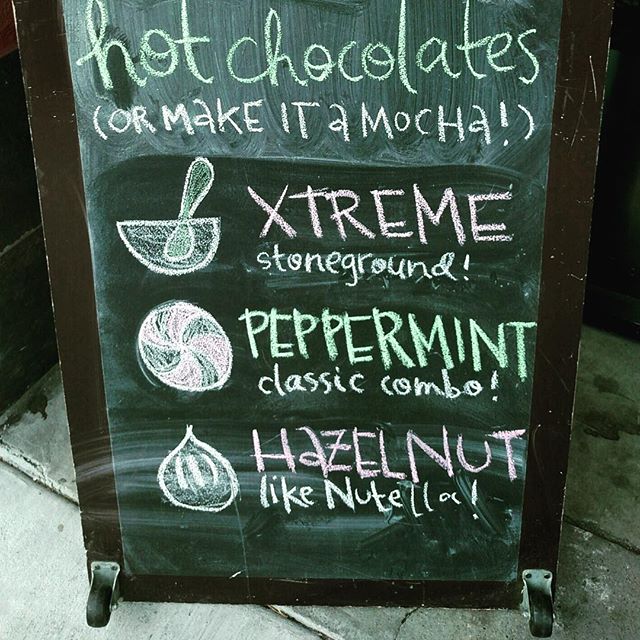 hot chocolates
(OR MAKE IT a MOCHa!)
XTREME
stoneground!
PEPPERMINT
classic combo!
HaZELNUT
like Nutella!